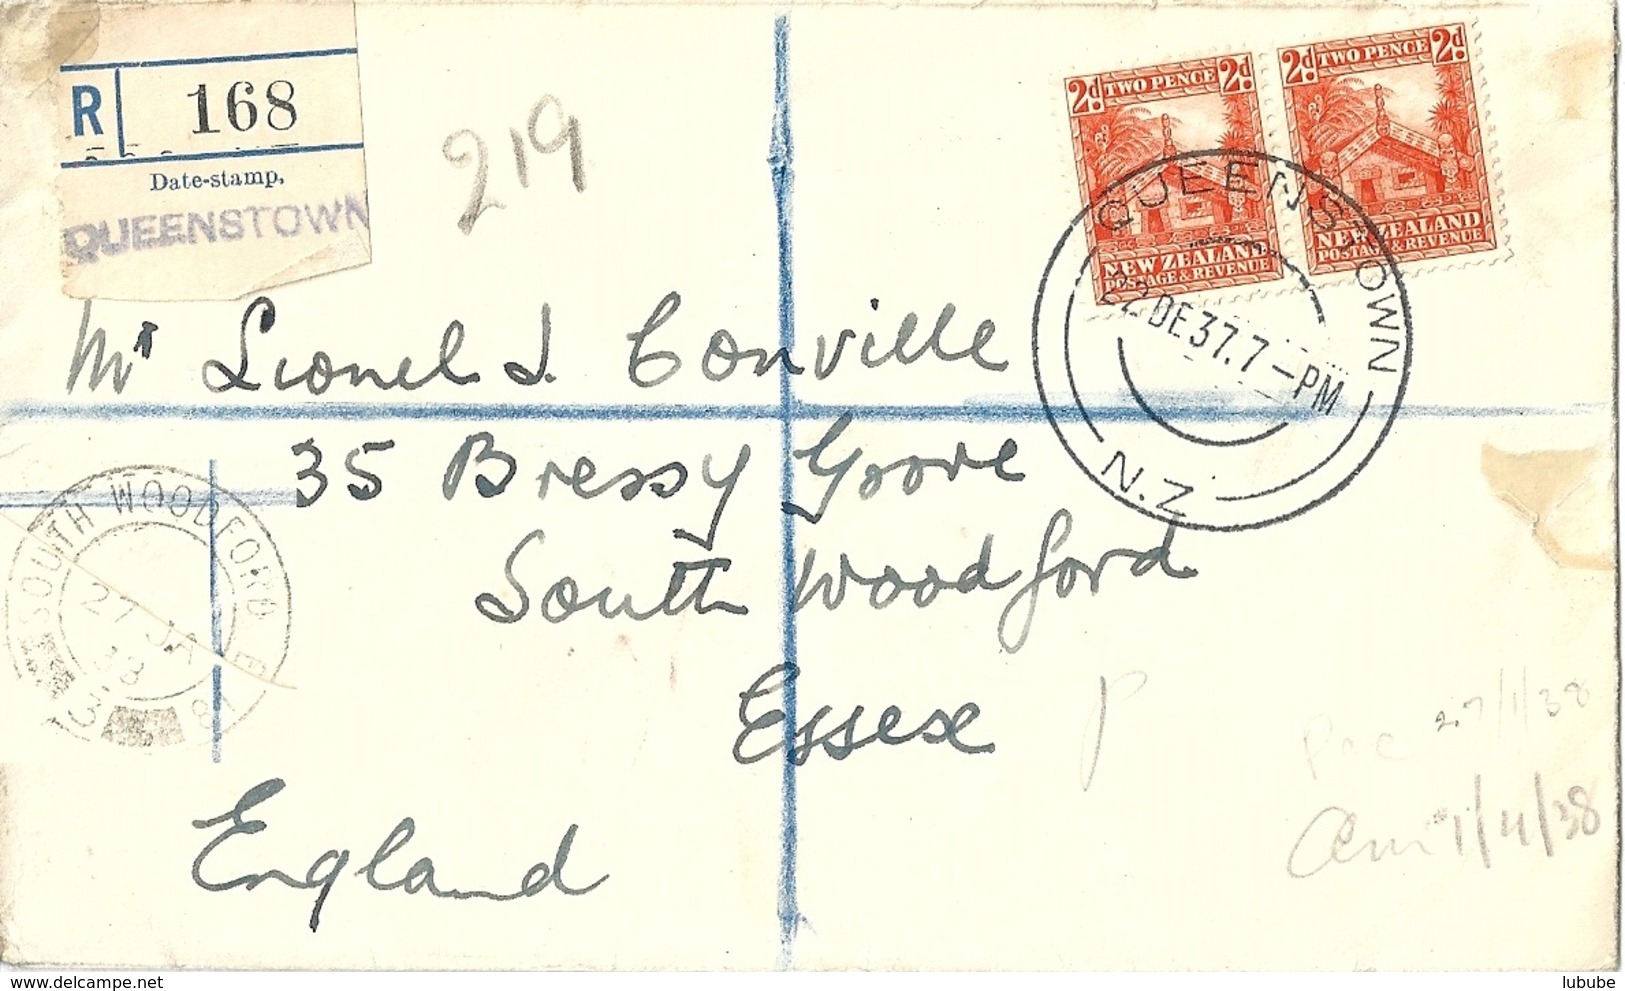 R 168
Date-stamp,
QUEENSTOWN
219
2d. TWO PENCE 2d.
NEW ZEALAND
POSTAGE & REVENUE
2d. TWO PENCE 2d.
NEW ZEALAND
POSTAGE & REVENUE
QUEENSTOWN
22 DE 37.7-PM
N.Z
Mr Lionel J. Conville
35 Bressy Grove
South Woodford
Essex
England
SOUTH WOODFORD E
27 JA
38
81
P
27/1/38
1/4/38
© Delcampe.net
lubube